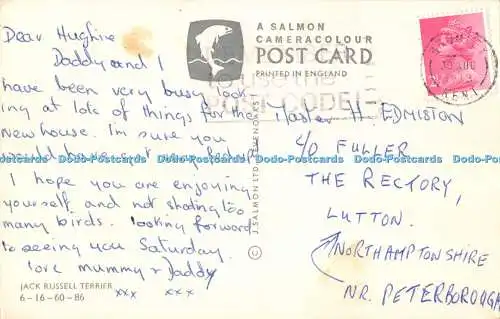 Dear Hughie
Daddy and I
have been very busy look-
ing at lots of things for the
new house. I'm sure you
would have
I hope you are enjoying
yourself and not shooting too
many birds. looking forward
to seeing you Saturday.
love mummy + Daddy
xxx xxx
JACK RUSSELL TERRIER
6-16-60-86
A SALMON
CAMERACOLOUR
POST CARD
PRINTED IN ENGLAND
to use the
POST CODE!
© J. SALMON LTD SEVENOAKS
KENT
Master H. EDMISTON
c/o FULLER
THE RECTORY,
LUTTON.
NORTHAMPTONSHIRE
NR. PETERBOROUGH
Dodo-Postcards Dodo-Postcards Dodo-Postcards Dodo-Postcards Dodo-Postcards